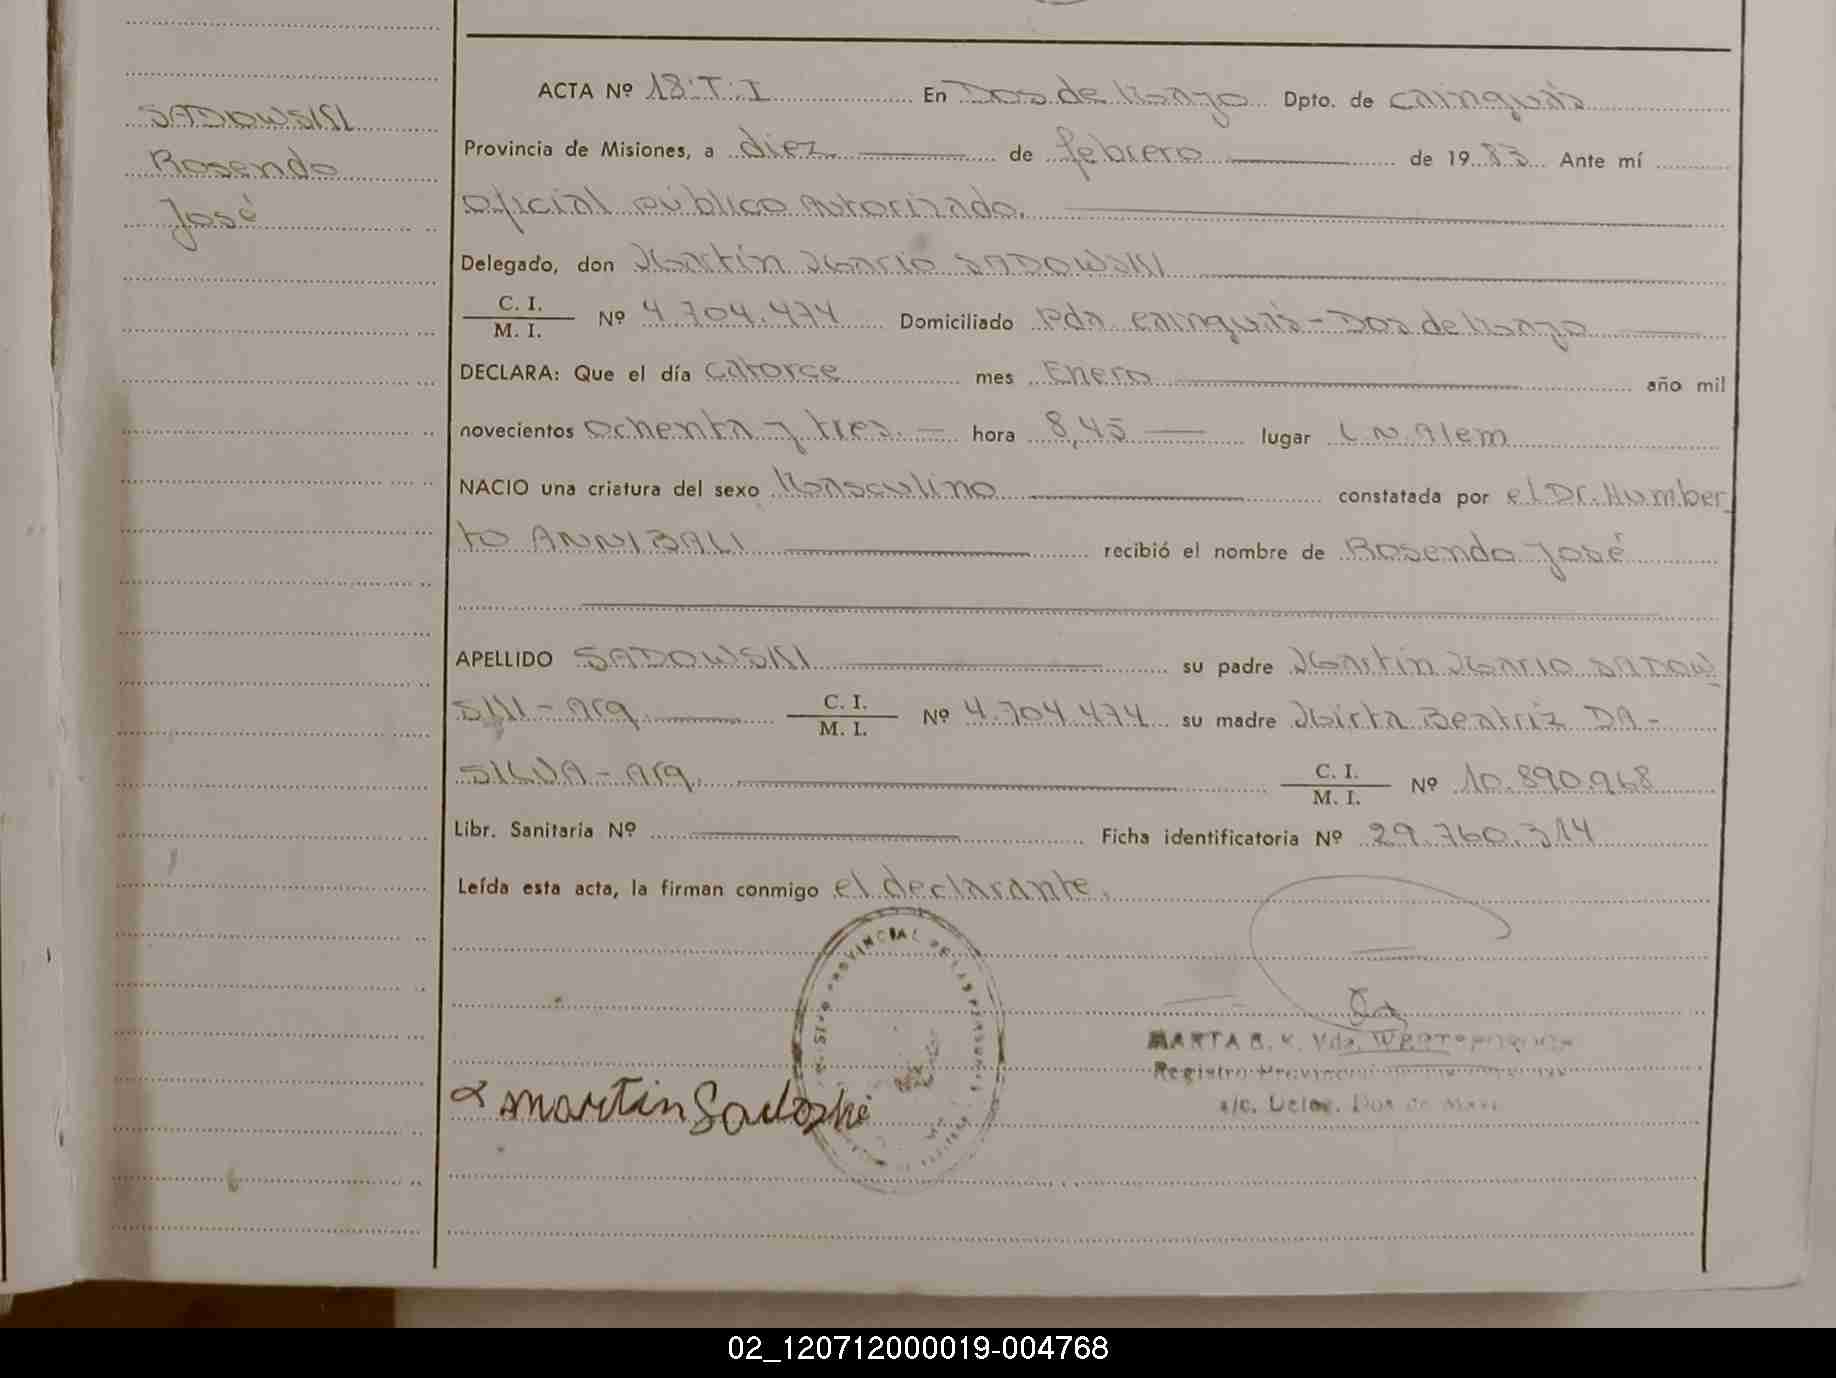 SADOWSKI
Rosendo
José
ACTA Nº 18.T.I En Dos de Mayo Dpto. de Cainguás
Provincia de Misiones, a diez de febrero de 1983 Ante mí
oficial público autorizado.
Delegado, don Martín Mario SADOWSKI
C. I.
M. I. Nº 4.704.474 Domiciliado Pda Cainguás - Dos de Mayo
DECLARA: Que el día catorce mes Enero año mil
novecientos ochenta y tres. hora 8,45 lugar L N Alem
NACIO una criatura del sexo Masculino constatada por el Dr. Humber
to ANNIBALI recibió el nombre de Rosendo José
APELLIDO SADOWSKI su padre Martín Mario SADOW
SKI - Arg. C. I.
M. I. Nº 4.704.474 su madre Mirta Beatriz DA-
SILVA - Arg. C. I.
M. I. Nº 10.890.968
Libr. Sanitaria Nº Ficha identificatoria Nº 29.760.314
Leída esta acta, la firman conmigo el declarante.
PROVINCIAL DE LAS PERSONAS
MARTA R. K. Vda.
Registro Provincial
a/c. Deleg. Dos de Mayo
Martin Sadoski
02_120712000019-004768